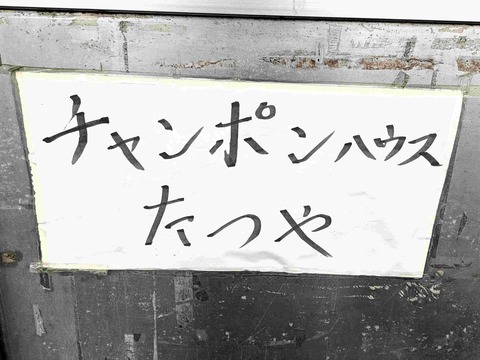 チャンポンハウス
たつや